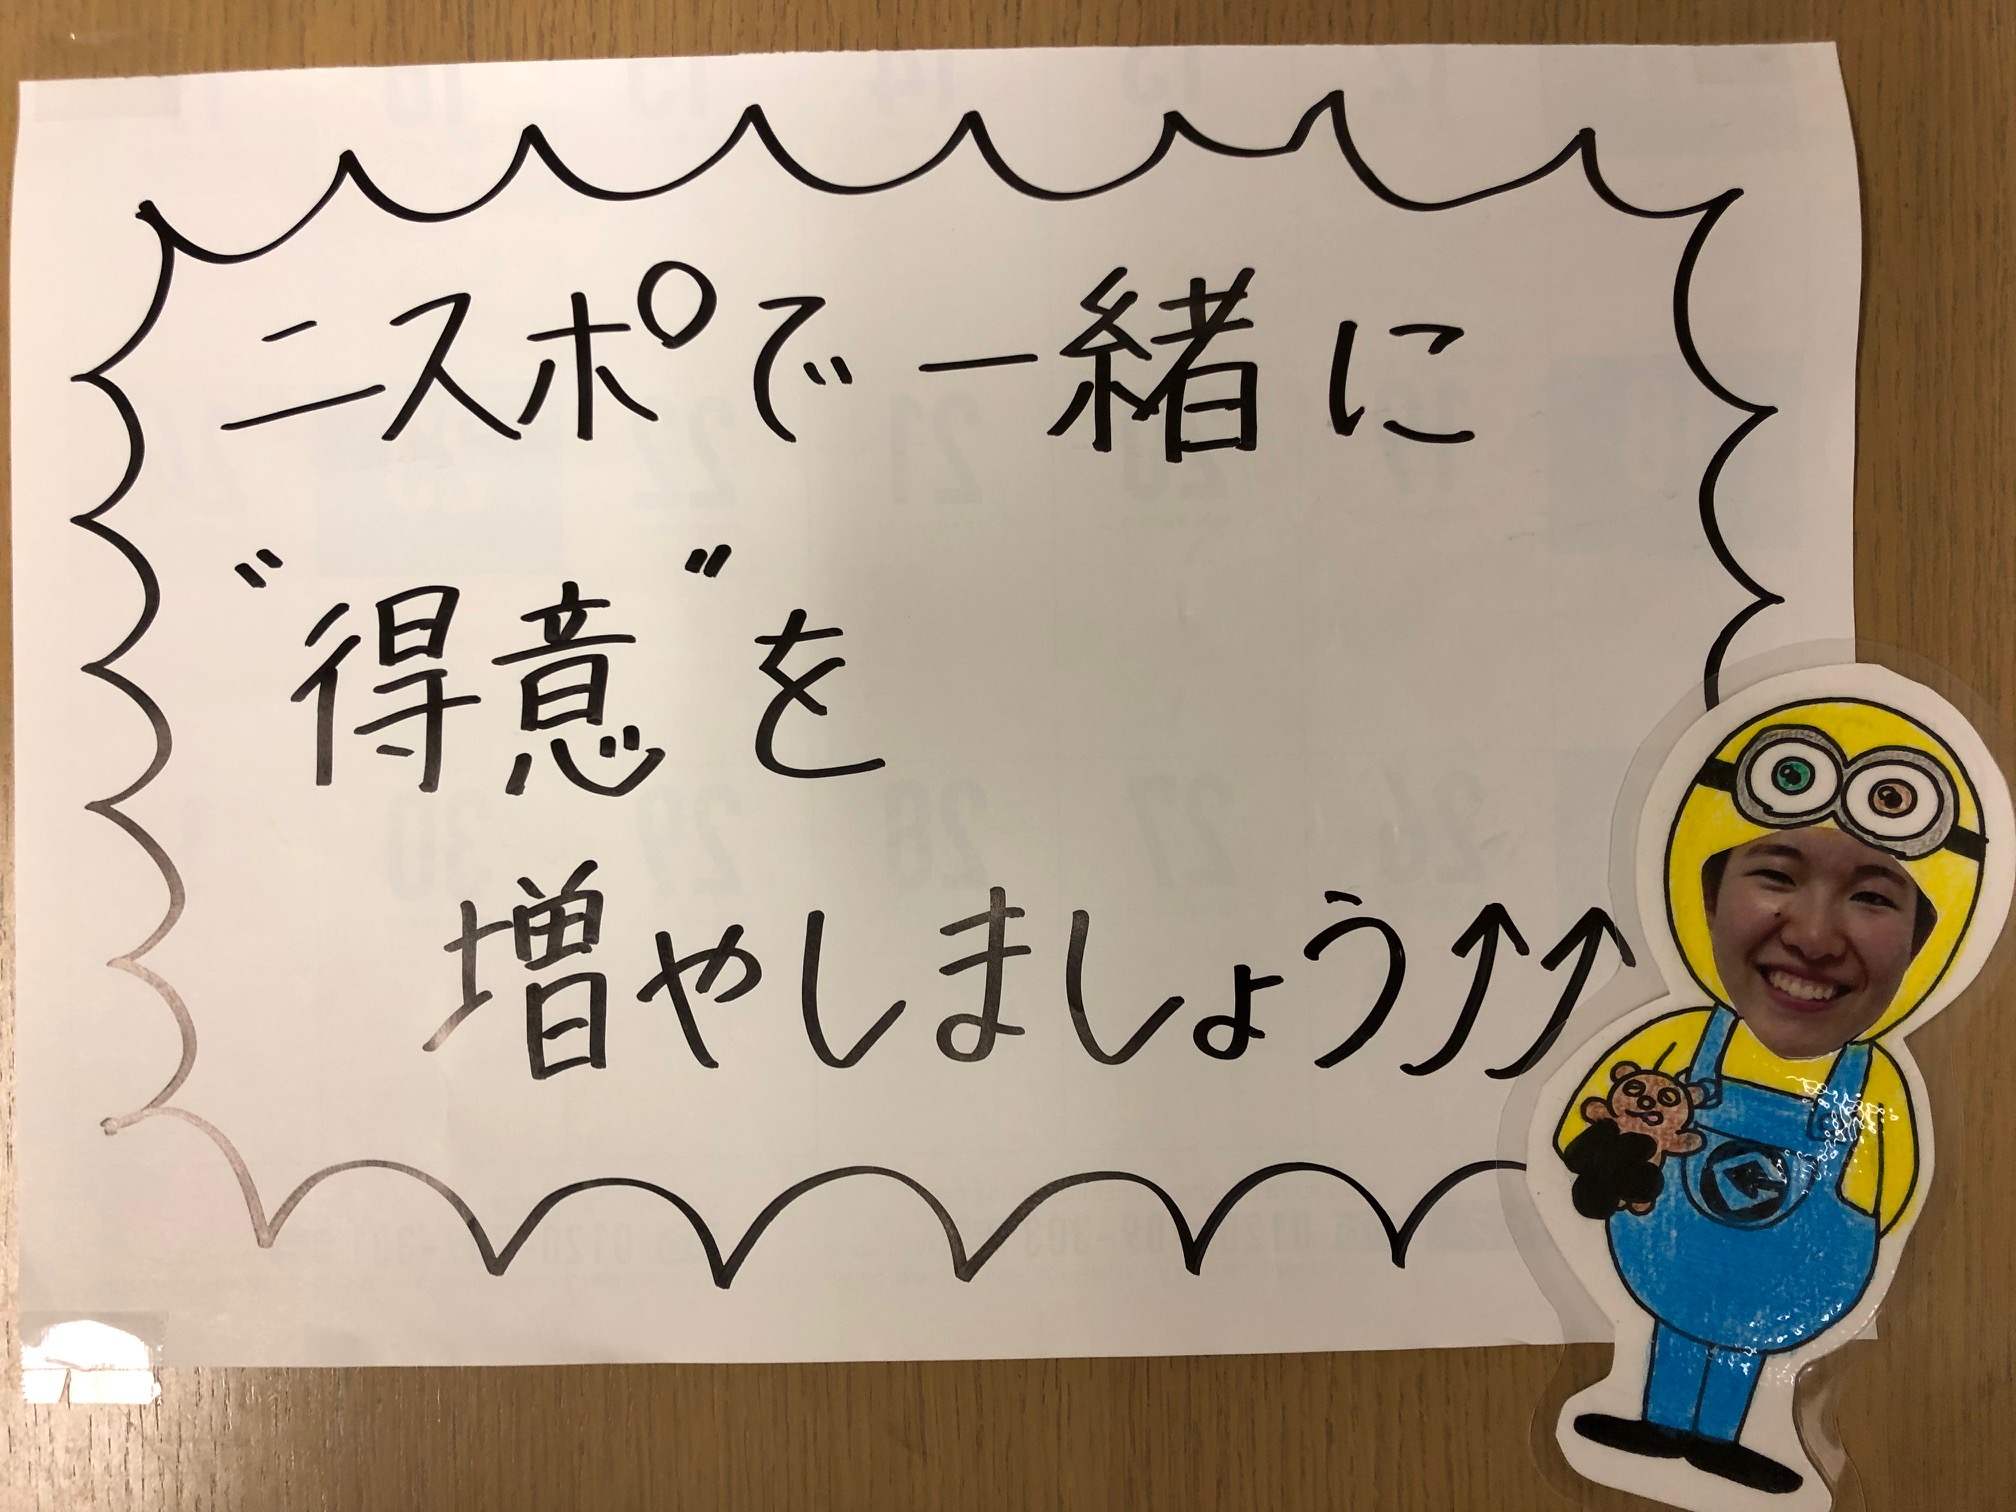 ニスポで一緒に
"得意"を
増やしましょう⤴⤴